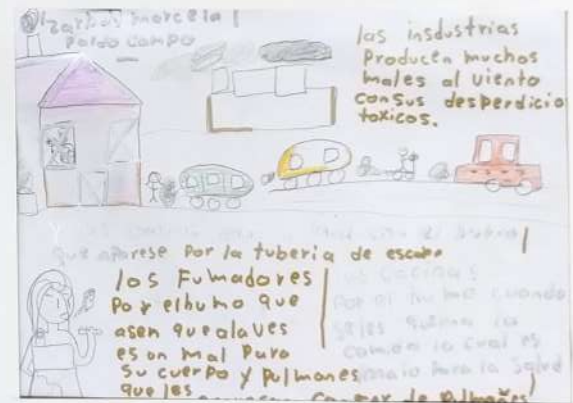 marcela
Pardo campo
las insdustrias
Producen muchos
males al viento
con sus desperdicio
toxicos.
que aparese por la tuberia de escape
los Fumadores
Por el humo que
asen que a la ves
es on mal para
su cuerpo y pulmones
que les
cancer de pulmones
cocinas
por el humo cuando
se les quema la
comida lo cual es
malo para la salud